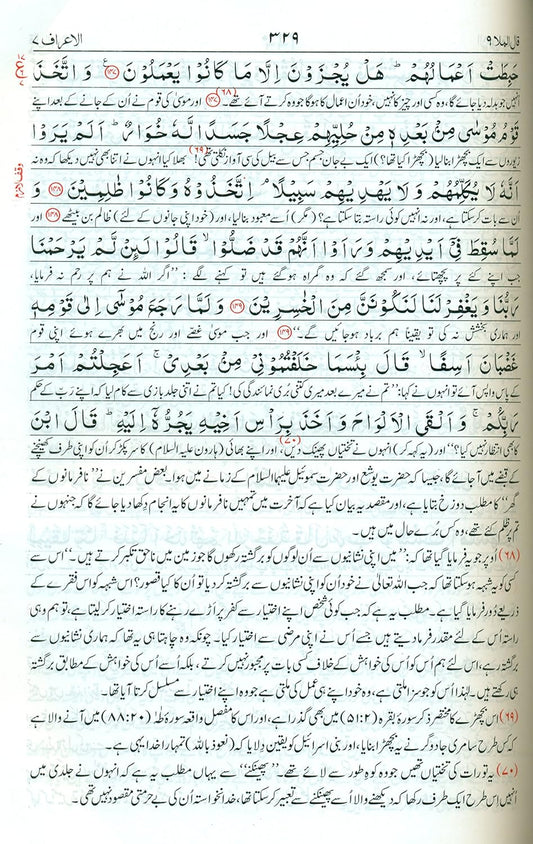 قال الملا ۹ ۳۲۹ الاعراف ۷
حَبِطَتْ اَعْمَالُهُمْ ؕ هَلْ يُجْزَوْنَ اِلَّا مَا كَانُوْا يَعْمَلُوْنَ ﴿۱۴۷﴾ وَ اتَّخَذَ
انہیں جو بدلہ دیا جائے گا، وہ کسی اور چیز کا نہیں، خود اُن اعمال کا ہوگا جو وہ کرتے آئے تھے۔ (۶۸) ﴿۱۴۷﴾ اور موسیٰ کی قوم نے اُن کے جانے کے بعد اپنے
قَوْمُ مُوْسٰى مِنْۢ بَعْدِهٖ مِنْ حُلِيِّهِمْ عِجْلًا جَسَدًا لَّهٗ خُوَارٌ ؕ اَلَمْ يَرَوْا
زیوروں سے ایک بچھڑا بنالیا (بچھڑا کیا تھا؟) ایک بے جان جسم جس سے بیل کی سی آواز نکلتی تھی! (۶۹) بھلا کیا انہوں نے اتنا بھی نہیں دیکھا کہ وہ نہ
اَنَّهٗ لَا يُكَلِّمُهُمْ وَلَا يَهْدِيْهِمْ سَبِيْلًا ۘ اِتَّخَذُوْهُ وَكَانُوْا ظٰلِمِيْنَ ﴿۱۴۸﴾ وَ
اُن سے بات کرسکتا ہے، اور نہ انہیں کوئی راستہ بتا سکتا ہے؟ (مگر) اُسے معبود بنالیا، اور (خود اپنی جانوں کے لئے) ظالم بن بیٹھے ﴿۱۴۸﴾ اور
لَمَّا سُقِطَ فِيْۤ اَيْدِيْهِمْ وَرَاَوْا اَنَّهُمْ قَدْ ضَلُّوْا ۙ قَالُوْا لَىِٕنْ لَّمْ يَرْحَمْنَا
جب اپنے کئے پر پچھتائے، اور سمجھ گئے کہ وہ گمراہ ہوگئے ہیں تو کہنے لگے: "اگر اللہ نے ہم پر رحم نہ فرمایا،
رَبُّنَا وَيَغْفِرْ لَنَا لَنَكُوْنَنَّ مِنَ الْخٰسِرِيْنَ ﴿۱۴۹﴾ وَلَمَّا رَجَعَ مُوْسٰۤى اِلٰى قَوْمِهٖ
اور ہماری بخشش نہ کی تو یقیناً ہم برباد ہوجائیں گے۔" ﴿۱۴۹﴾ اور جب موسیٰ غصے اور رنج میں بھرے ہوئے اپنی قوم
غَضْبَانَ اَسِفًا ۙ قَالَ بِئْسَمَا خَلَفْتُمُوْنِيْ مِنْۢ بَعْدِيْ ۚ اَعَجِلْتُمْ اَمْرَ
کے پاس واپس آئے تو انہوں نے کہا: "تم نے میرے بعد میری کتنی بُری نمائندگی کی! کیا تم نے اتنی جلد بازی سے کام لیا کہ اپنے رَبّ کے حکم
رَبِّكُمْ ۚ وَاَلْقَى الْاَلْوَاحَ وَاَخَذَ بِرَاْسِ اَخِيْهِ يَجُرُّهٗۤ اِلَيْهِ ؕ قَالَ ابْنَ
کا بھی انتظار نہیں کیا؟" اور (یہ کہہ کر) انہوں نے تختیاں پھینک دیں (۷۰)، اور اپنے بھائی (ہارون علیہ السلام) کا سر پکڑ کر اُن کو اپنی طرف کھینچنے
کے قبضے میں آجائے گا، جیسا کہ حضرت یوشع اور حضرت سموئیل علیہما السلام کے زمانے میں ہوا۔ بعض مفسرین نے "نافرمانوں کے
گھر" کا مطلب دوزخ بتایا ہے، اور مقصد یہ بیان کیا ہے کہ آخرت میں تمہیں نافرمانوں کا یہ انجام دِکھا دیا جائے گا کہ جنہوں نے
تم پر ظلم کئے تھے، وہ کس بُرے حال میں ہیں۔
(۶۸) اُوپر جو یہ فرمایا گیا تھا کہ: "میں اپنی نشانیوں سے اُن لوگوں کو برگشتہ رکھوں گا جو زمین میں ناحق تکبر کرتے ہیں۔" اس سے
کسی کو یہ شبہ ہوسکتا تھا کہ جب اللہ تعالیٰ نے خود اُن کو اپنی نشانیوں سے برگشتہ کردیا تو اُن کا کیا قصور؟ اس شبہ کو اس فقرے کے
ذریعے دُور فرمایا گیا ہے۔ مطلب یہ ہے کہ جب کوئی شخص اپنے اختیار سے کفر پر اَڑے رہنے کا راستہ اختیار کرلیتا ہے، تو ہم وہی
راستہ اُس کے لئے مقدر فرمادیتے ہیں جسے اُس نے اپنی مرضی سے اختیار کیا۔ چونکہ وہ چاہتا ہی یہ تھا کہ ہماری نشانیوں سے
برگشتہ رہے، اس لئے ہم اُس کو اُس کی خواہش کے خلاف کسی بات پر مجبور نہیں کرتے، بلکہ اُسے اُس کی خواہش کے مطابق برگشتہ
ہی رکھتے ہیں۔ لہٰذا اُس کو جو سزا ملتی ہے، وہ خود اپنے ہی عمل کی ملتی ہے جو وہ اپنے اختیار سے مسلسل کرتا آیا تھا۔
(۶۹) اس بچھڑے کا مختصر ذکر سورۂ بقرہ (۵۱:۲) میں بھی گذرا ہے، اور اس کا مفصل واقعہ سورۂ طٰہٰ (۸۸:۲۰) میں آنے والا ہے
کہ کس طرح سامری جادوگر نے یہ بچھڑا بنایا، اور بنی اسرائیل کو یقین دِلایا کہ (نعوذ باللہ) تمہارا خدا یہی ہے۔
(۷۰) یہ تورات کی تختیاں تھیں جو وہ کوہِ طور سے لائے تھے۔ "پھینکنے" سے یہاں مطلب یہ ہے کہ انہوں نے جلدی میں
اُنہیں اِس طرح ایک طرف رکھا کہ دیکھنے والا اُسے پھینکنے سے تعبیر کرسکتا تھا، خدانخواستہ اُن کی بے حرمتی مقصود نہیں تھی۔